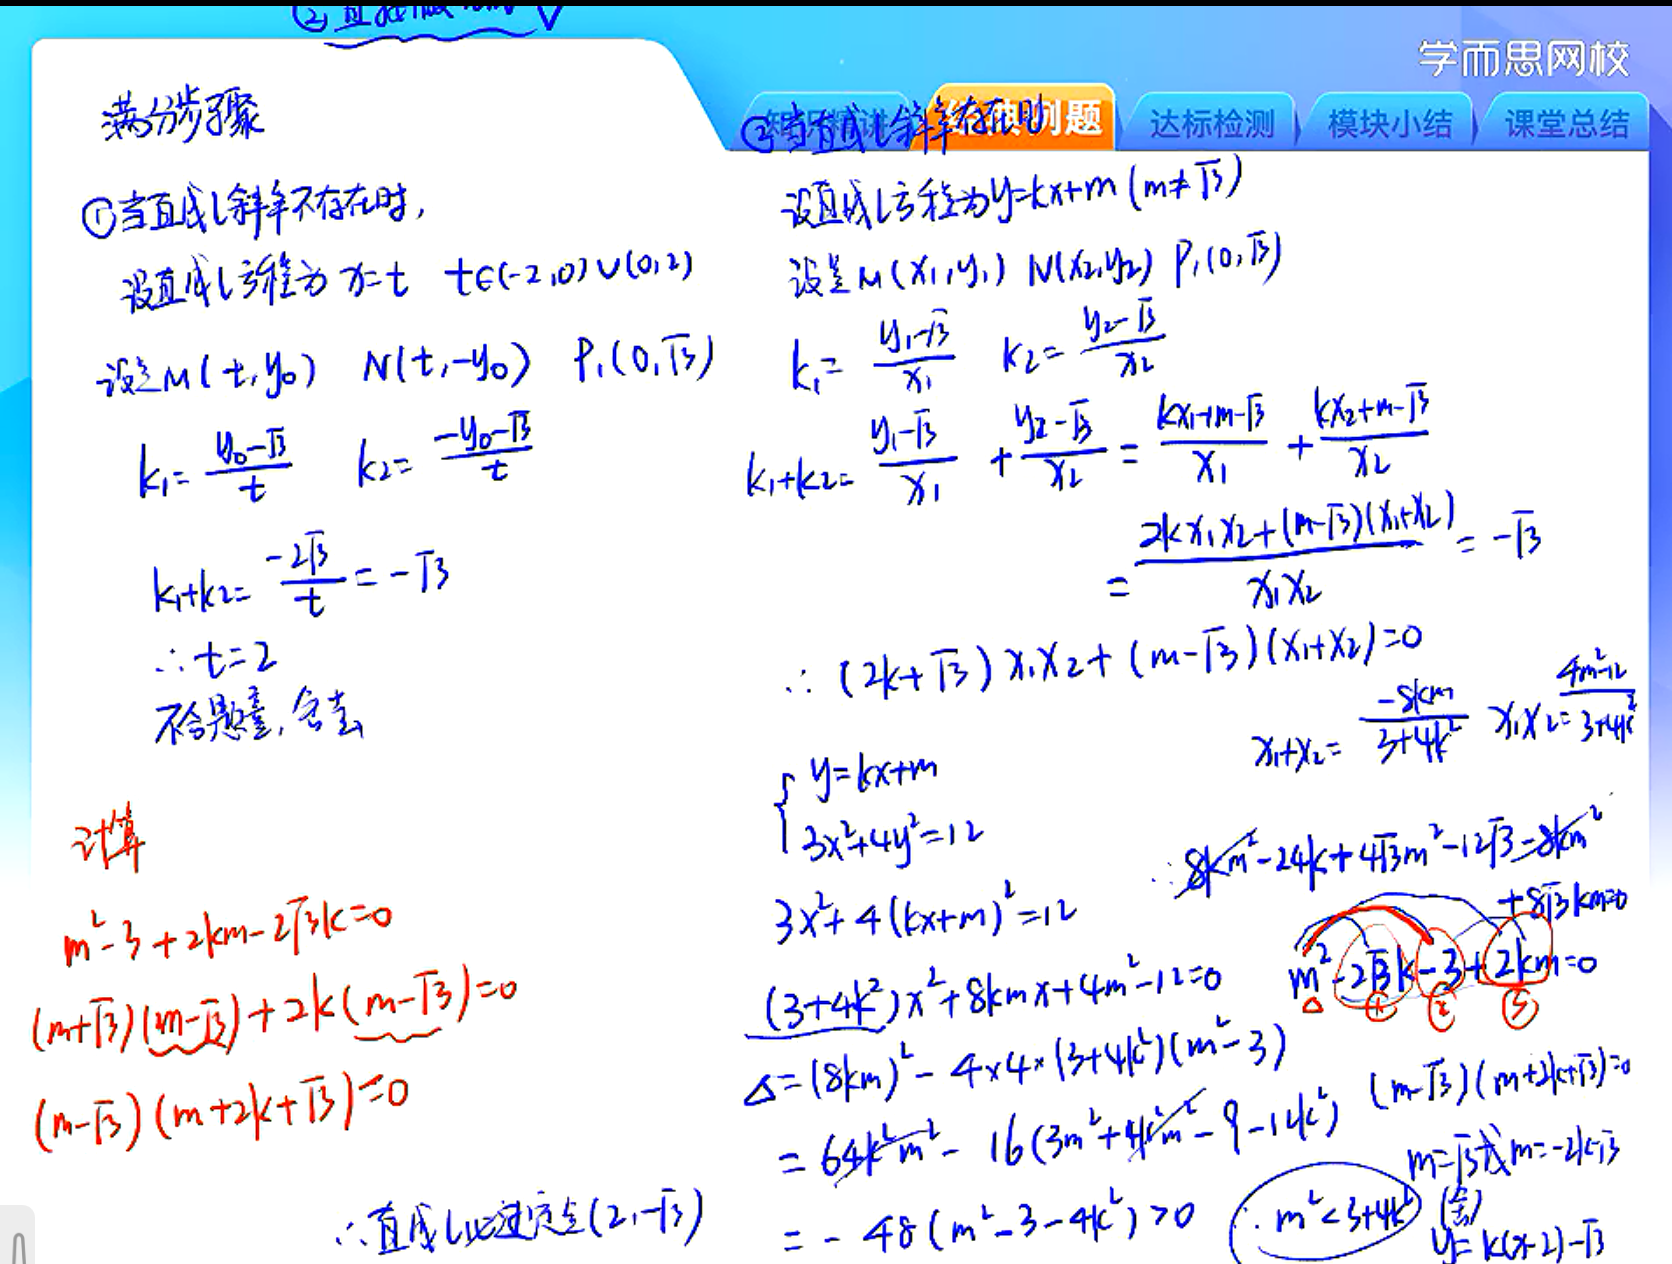 学而思网校
经典例题
达标检测
模块小结
课堂总结
满分步骤
①当直线l斜率不存在时,
设直线l方程为x=t t∈(-2,0)∪(0,2)
设点M(t,y₀) N(t,-y₀) P₁(0,√3)
k₁=(y₀-√3)/t k₂=(-y₀-√3)/t
k₁+k₂=(-2√3)/t=-√3
∴t=2
不合题意,舍去
计算
m²-3+2km-2√3k=0
(m+√3)(m-√3)+2k(m-√3)=0
(m-√3)(m+2k+√3)=0
∴直线l必过定点(2,-√3)
②当直线l斜率存在时
设直线l方程为y=kx+m(m≠√3)
设点M(x₁,y₁) N(x₂,y₂) P₁(0,√3)
k₁=(y₁-√3)/x₁ k₂=(y₂-√3)/x₂
k₁+k₂=(y₁-√3)/x₁+(y₂-√3)/x₂=(kx₁+m-√3)/x₁+(kx₂+m-√3)/x₂
=(2kx₁x₂+(m-√3)(x₁+x₂))/(x₁x₂)=-√3
∴(2k+√3)x₁x₂+(m-√3)(x₁+x₂)=0
x₁+x₂=(-8km)/(3+4k²) x₁x₂=(4m²-12)/(3+4k²)
{y=kx+m
3x²+4y²=12
3x²+4(kx+m)²=12
(3+4k²)x²+8kmx+4m²-12=0
Δ=(8km)²-4×4×(3+4k²)(m²-3)
=64k²m²-16(3m²+4k²m²-9-12k²)
=-48(m²-3-4k²)>0
∴m²<3+4k²
∴8km²-24k+4√3m²-12√3-8km²
+8√3km=0
m²-2√3k-3+2km=0
△ ① ② ③
(m-√3)(m+2k+√3)=0
m=√3或m=-2k-√3
(舍)
y=k(x-2)-√3